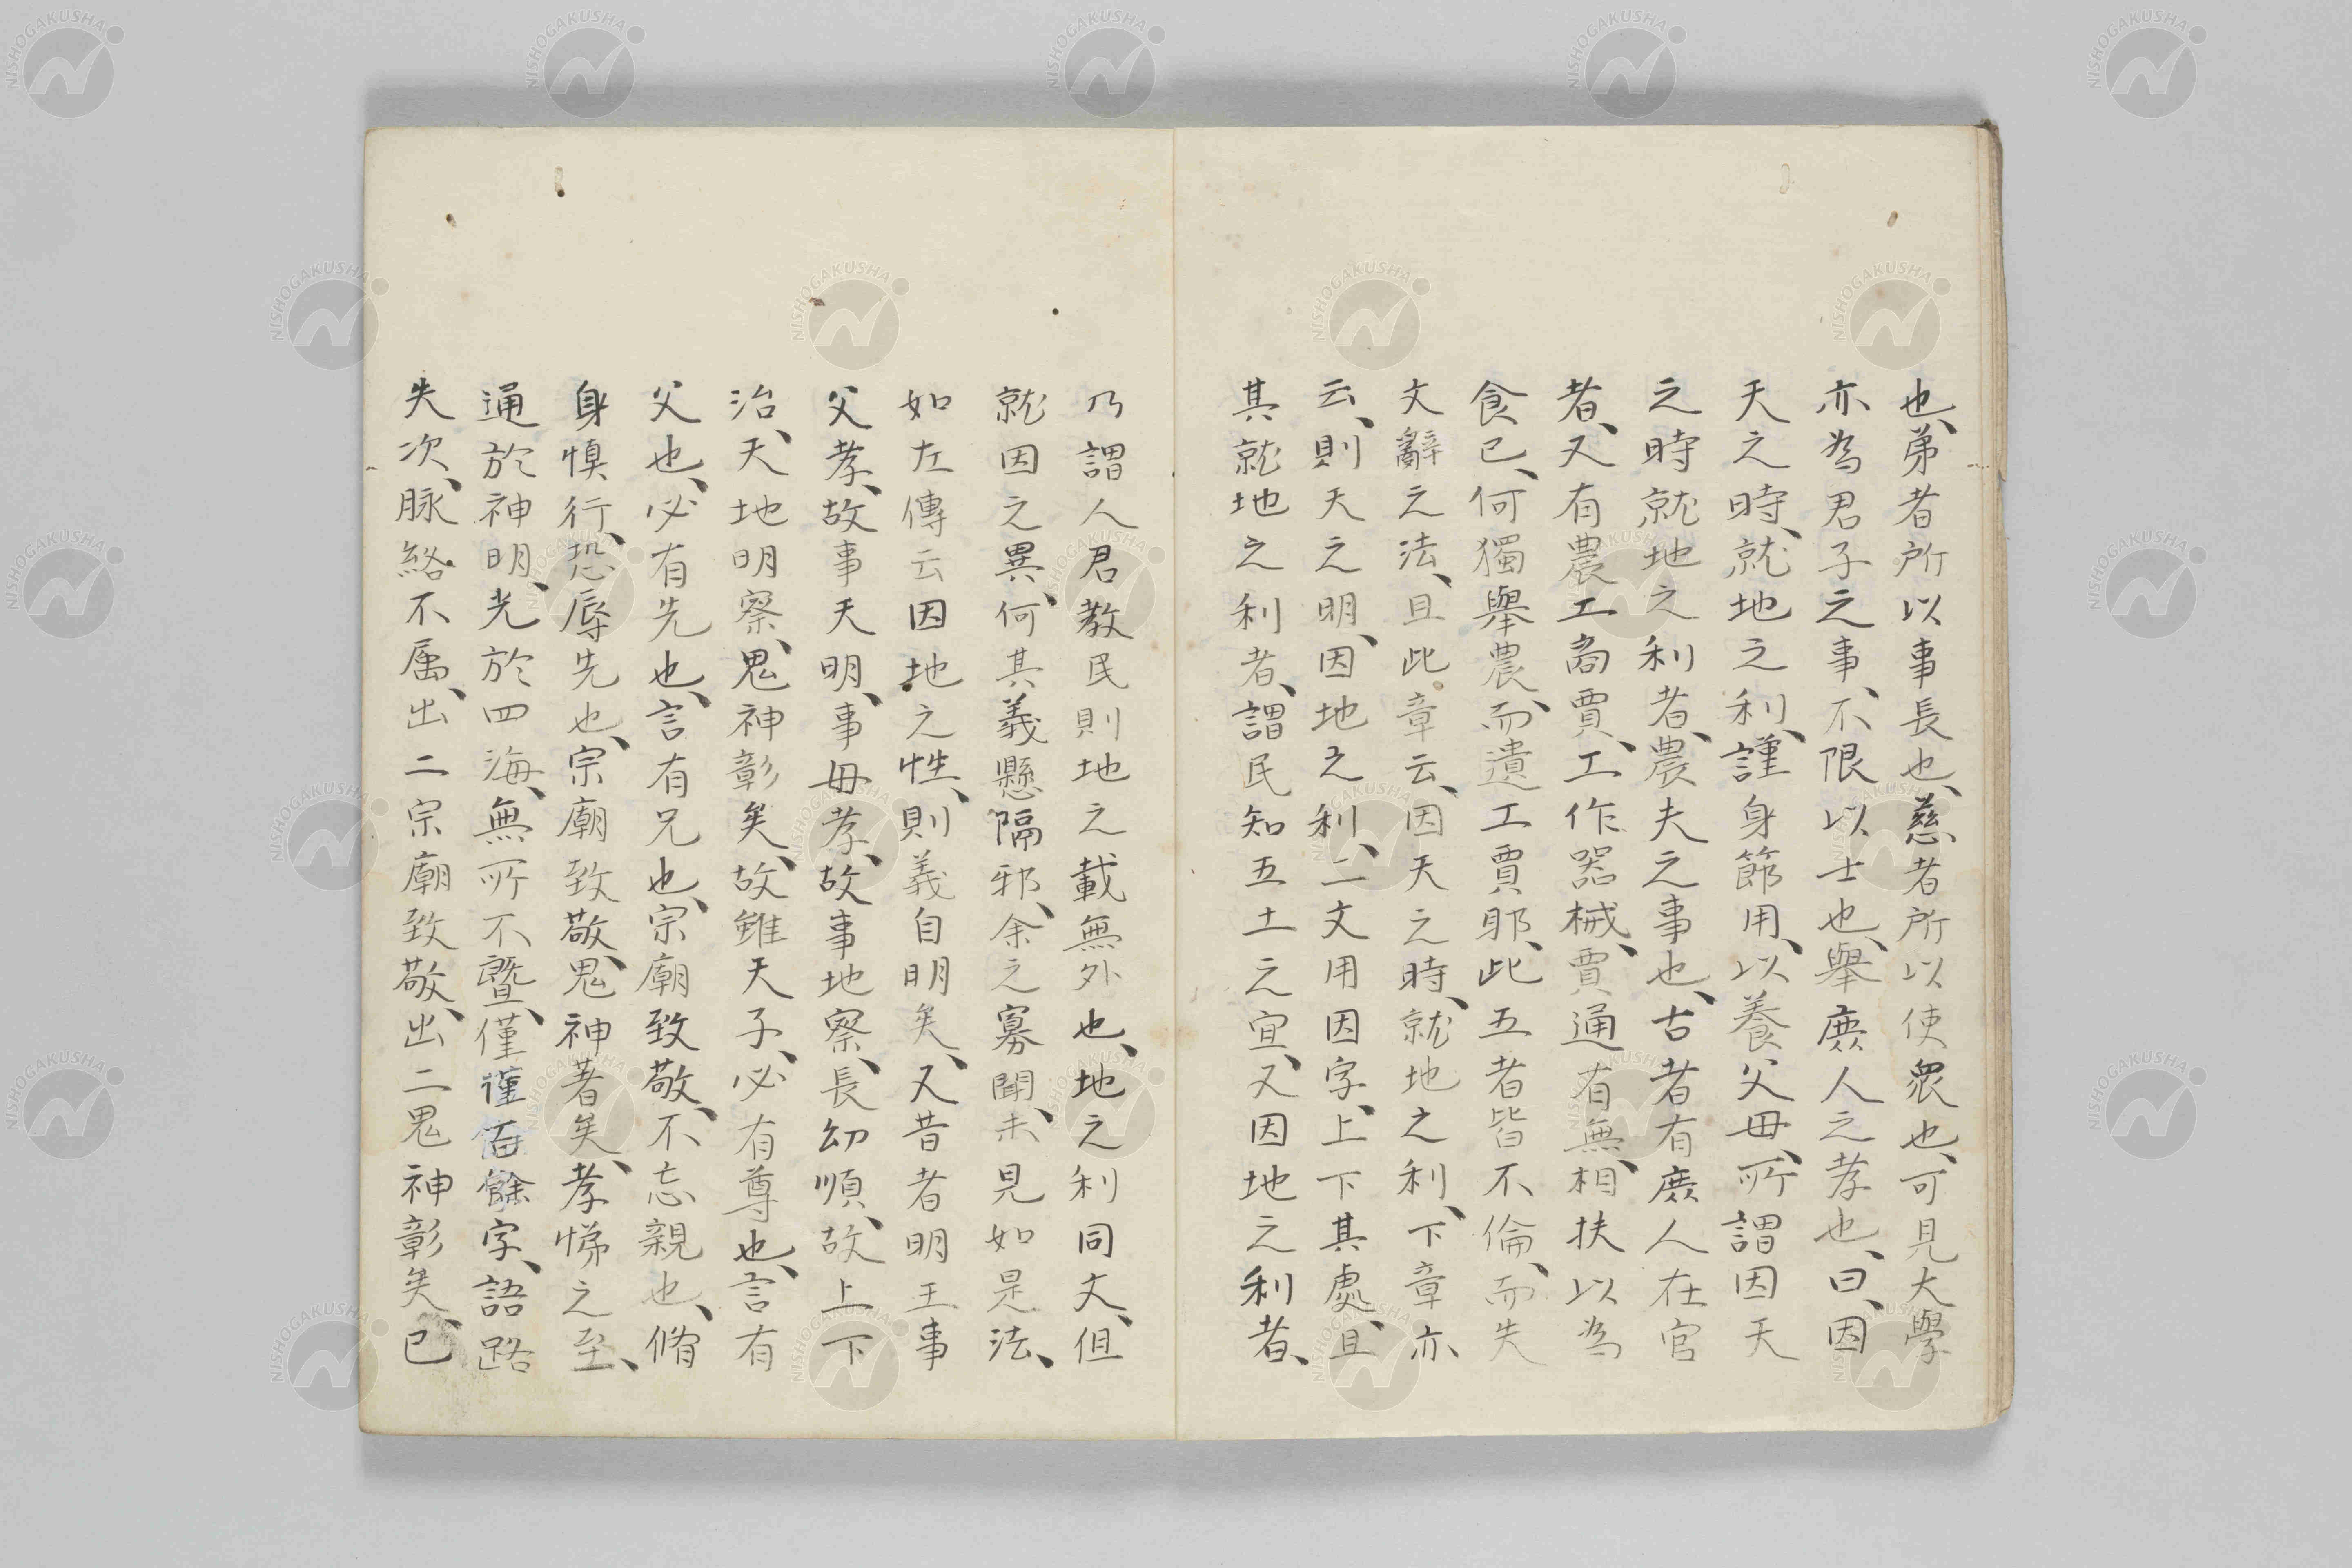 也、弟者所以事長也、慈者所以使衆也、可見大學
亦為君子之事、不限以士也、舉庶人之孝也、曰、因
天之時、就地之利、謹身節用、以養父母、所謂因天
之時就地之利者、農夫之事也、古者有庶人在官
者、又有農工商賈、工作器械、賈通有無、相扶以為
食已、何獨舉農、而遺工賈耶、此五者皆不倫、而失
文辭之法、且此章云、因天之時、就地之利、下章亦
云、則天之明、因地之利、二文用因字、上下其處、且
其就地之利者、謂民知五土之宜、又因地之利者、
乃謂人君教民則地之載無外也、地之利同文、但
就因之異、何其義懸隔邪、余之寡聞、未見如是法、
如左傳云因地之性、則義自明矣、又昔者明王事
父孝、故事天明、事母孝、故事地察、長幼順、故上下
治、天地明察、鬼神彰矣、故雖天子、必有尊也、言有
父也、必有先也、言有兄也、宗廟致敬、不忘親也、脩
身慎行、恐辱先也、宗廟致敬、鬼神著矣、孝悌之至、
通於神明、光於四海、無所不曁、僅僅百餘字、語路
失次、脉絡不属、出二宗廟致敬、出二鬼神彰矣、已
NISHOGAKUSHA